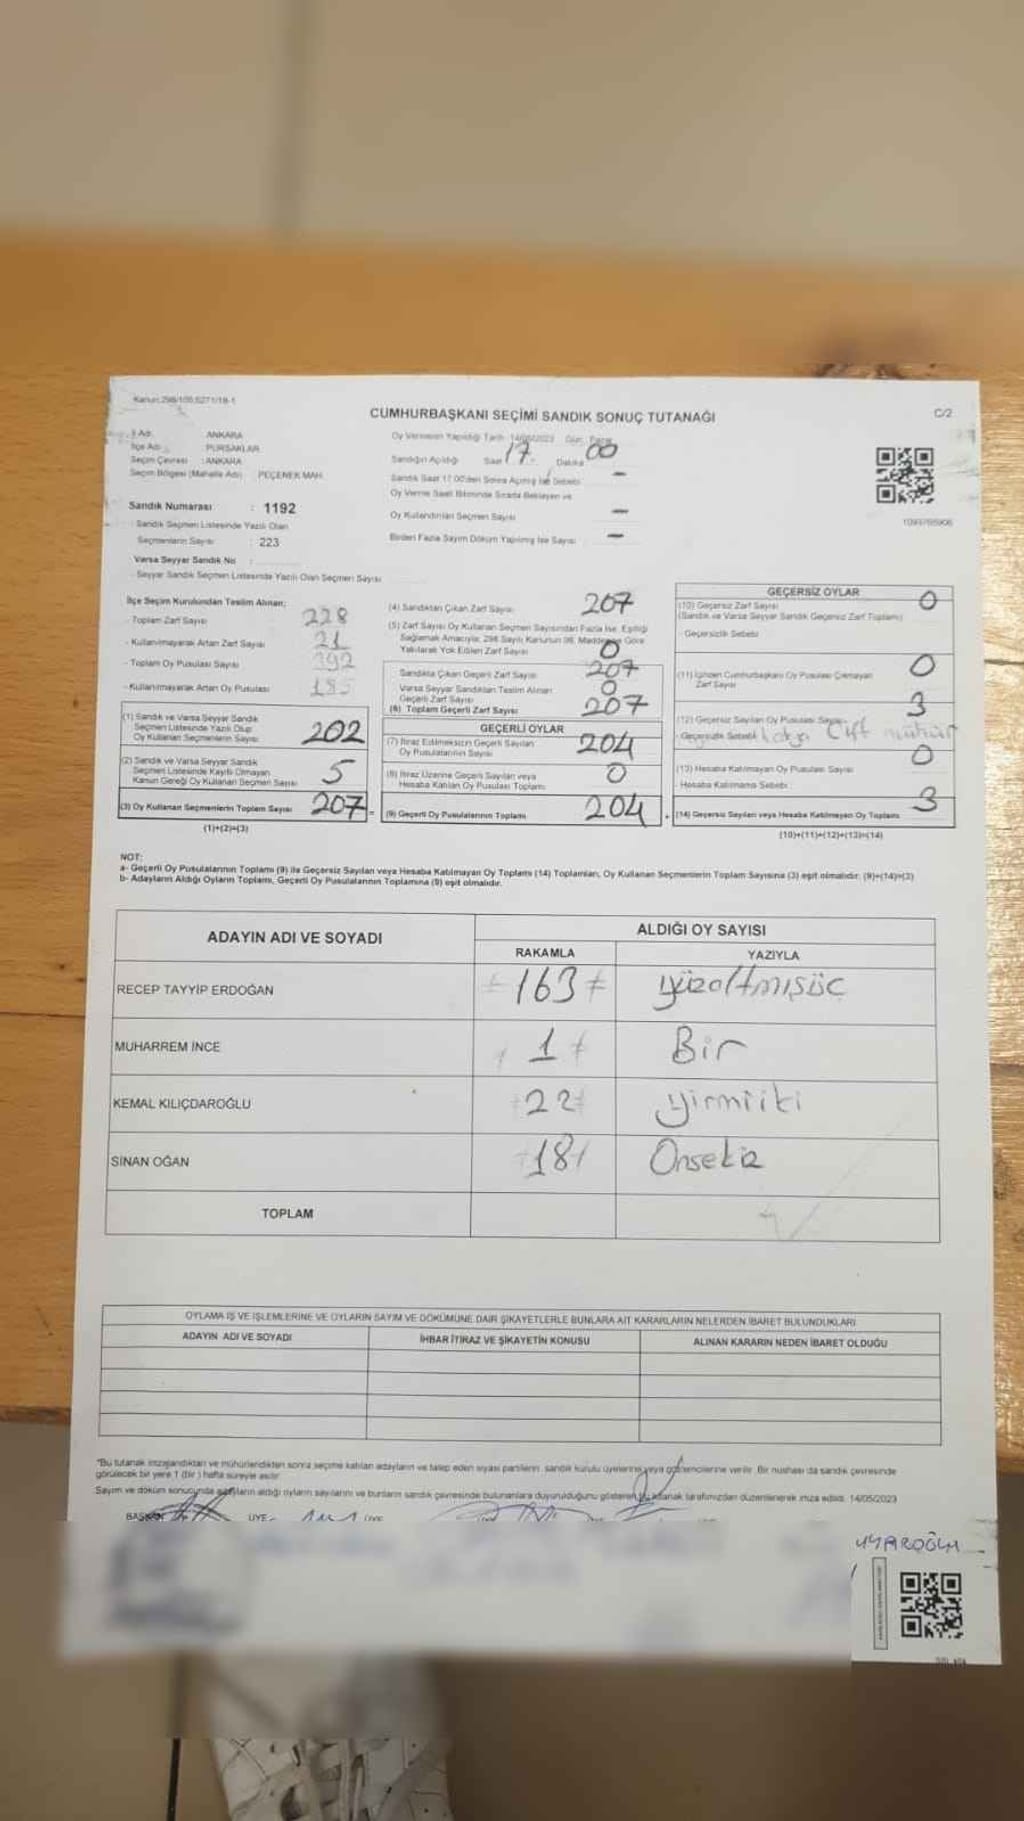 Kanun:298/105,6271/18-1
CUMHURBAŞKANI SEÇİMİ SANDIK SONUÇ TUTANAĞI
C/2
İl Adı ANKARA
İlçe Adı PURSAKLAR
Seçim Çevresi : ANKARA
Seçim Bölgesi (Mahalle Adı) PEÇENEK MAH.
Sandık Numarası : 1192
- Sandık Seçmen Listesinde Yazılı Olan
Seçmenlerin Sayısı : 223
Varsa Seyyar Sandık No
- Seyyar Sandık Seçmen Listesinde Yazılı Olan Seçmen Sayısı
Oy Vermenin Yapıldığı Tarih 14/05/2023 Gün: Pazar
Sandığın Açıldığı Saat 17. Dakika 00
Sandık Saat 17.00'den Sonra Açılmış İse Sebebi -
Oy Verme Saati Bitiminde Sırada Bekleyen ve
Oy Kullandırılan Seçmen Sayısı -
Birden Fazla Sayım Döküm Yapılmış İse Sayısı -
1093765906
İlçe Seçim Kurulundan Teslim Alınan;
- Toplam Zarf Sayısı 228
- Kullanılmayarak Artan Zarf Sayısı 21
- Toplam Oy Pusulası Sayısı 392
- Kullanılmayarak Artan Oy Pusulası 185
(1) Sandık ve Varsa Seyyar Sandık
Seçmen Listesinde Yazılı Olup
Oy Kullanan Seçmenlerin Sayısı 202
(2) Sandık ve Varsa Seyyar Sandık
Seçmen Listesinde Kayıtlı Olmayan
Kanun Gereği Oy Kullanan Seçmen Sayısı 5
(3) Oy Kullanan Seçmenlerin Toplam Sayısı 207 =
(1)+(2)=(3)
(4) Sandıktan Çıkan Zarf Sayısı 207
(5) Zarf Sayısı Oy Kullanan Seçmen Sayısından Fazla İse, Eşitliği
Sağlamak Amacıyla, 298 Sayılı Kanunun 98. Maddesine Göre
Yakılarak Yok Edilen Zarf Sayısı 0
Sandıkta Çıkan Geçerli Zarf Sayısı 207
Varsa Seyyar Sandıktan Teslim Alınan
Geçerli Zarf Sayısı 0
(6) Toplam Geçerli Zarf Sayısı 207
GEÇERLİ OYLAR
(7) İtiraz Edilmeksizin Geçerli Sayılan
Oy Pusulalarının Sayısı 204
(8) İtiraz Üzerine Geçerli Sayılan veya
Hesaba Katılan Oy Pusulası Toplamı 0
(9) Geçerli Oy Pusulalarının Toplamı 204 +
GEÇERSİZ OYLAR
(10) Geçersiz Zarf Sayısı 0
(Sandık ve Varsa Seyyar Sandık Geçersiz Zarf Toplamı)
- Geçersizlik Sebebi
(11) İçinden Cumhurbaşkanı Oy Pusulası Çıkmayan
Zarf Sayısı 0
(12) Geçersiz Sayılan Oy Pusulası Sayısı 3
- Geçersizlik Sebebi Çift mühür
(13) Hesaba Katılmayan Oy Pusulası Sayısı 0
- Hesaba Katılmama Sebebi
(14) Geçersiz Sayılan veya Hesaba Katılmayan Oy Toplamı 3
(10)+(11)+(12)+(13)=(14)
NOT:
a- Geçerli Oy Pusulalarının Toplamı (9) ile Geçersiz Sayılan veya Hesaba Katılmayan Oy Toplamı (14) Toplamları, Oy Kullanan Seçmenlerin Toplam Sayısına (3) eşit olmalıdır. (9)+(14)=(3)
b- Adayların Aldığı Oyların Toplamı, Geçerli Oy Pusulalarının Toplamına (9) eşit olmalıdır.
ADAYIN ADI VE SOYADI
ALDIĞI OY SAYISI
RAKAMLA YAZIYLA
RECEP TAYYİP ERDOĞAN 163 yüzaltmışüç
MUHARREM İNCE 1 Bir
KEMAL KILIÇDAROĞLU 22 yirmiiki
SİNAN OĞAN 18 Onsekiz
TOPLAM
OYLAMA İŞ VE İŞLEMLERİNE VE OYLARIN SAYIM VE DÖKÜMÜNE DAİR ŞİKAYETLERLE BUNLARA AİT KARARLARIN NELERDEN İBARET BULUNDUKLARI
ADAYIN ADI VE SOYADI İHBAR İTİRAZ VE ŞİKAYETİN KONUSU ALINAN KARARIN NEDEN İBARET OLDUĞU
"Bu tutanak imzalandıktan ve mühürlendikten sonra seçime katılan adayların ve talep eden siyasi partilerin, sandık kurulu üyelerine veya gözlemcilerine verilir. Bir nüshası da sandık çevresinde
görülecek bir yere 1 (bir) hafta süreyle asılır.
Sayım ve döküm sonucunda adayların aldığı oyların sayılarını ve bunların sandık çevresinde bulunanlara duyurulduğunu gösteren bu tutanak tarafımızdan düzenlenerek imza edildi. 14/05/2023
BAŞKAN ÜYE ÜYE